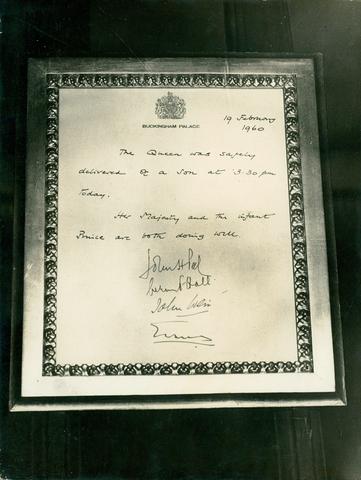 BUCKINGHAM PALACE
19 February
1960
The Queen was safely
delivered of a son at 3.30 pm
today.
Her Majesty and the infant
Prince are both doing well.
John H Peel
John Weir
Evans